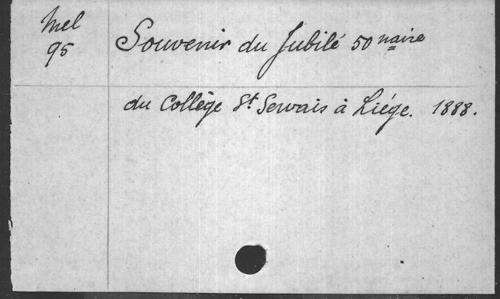 Mel
95
Souvenir du Jubilé 50naire
du Collège St Servais à Liége. 1888.